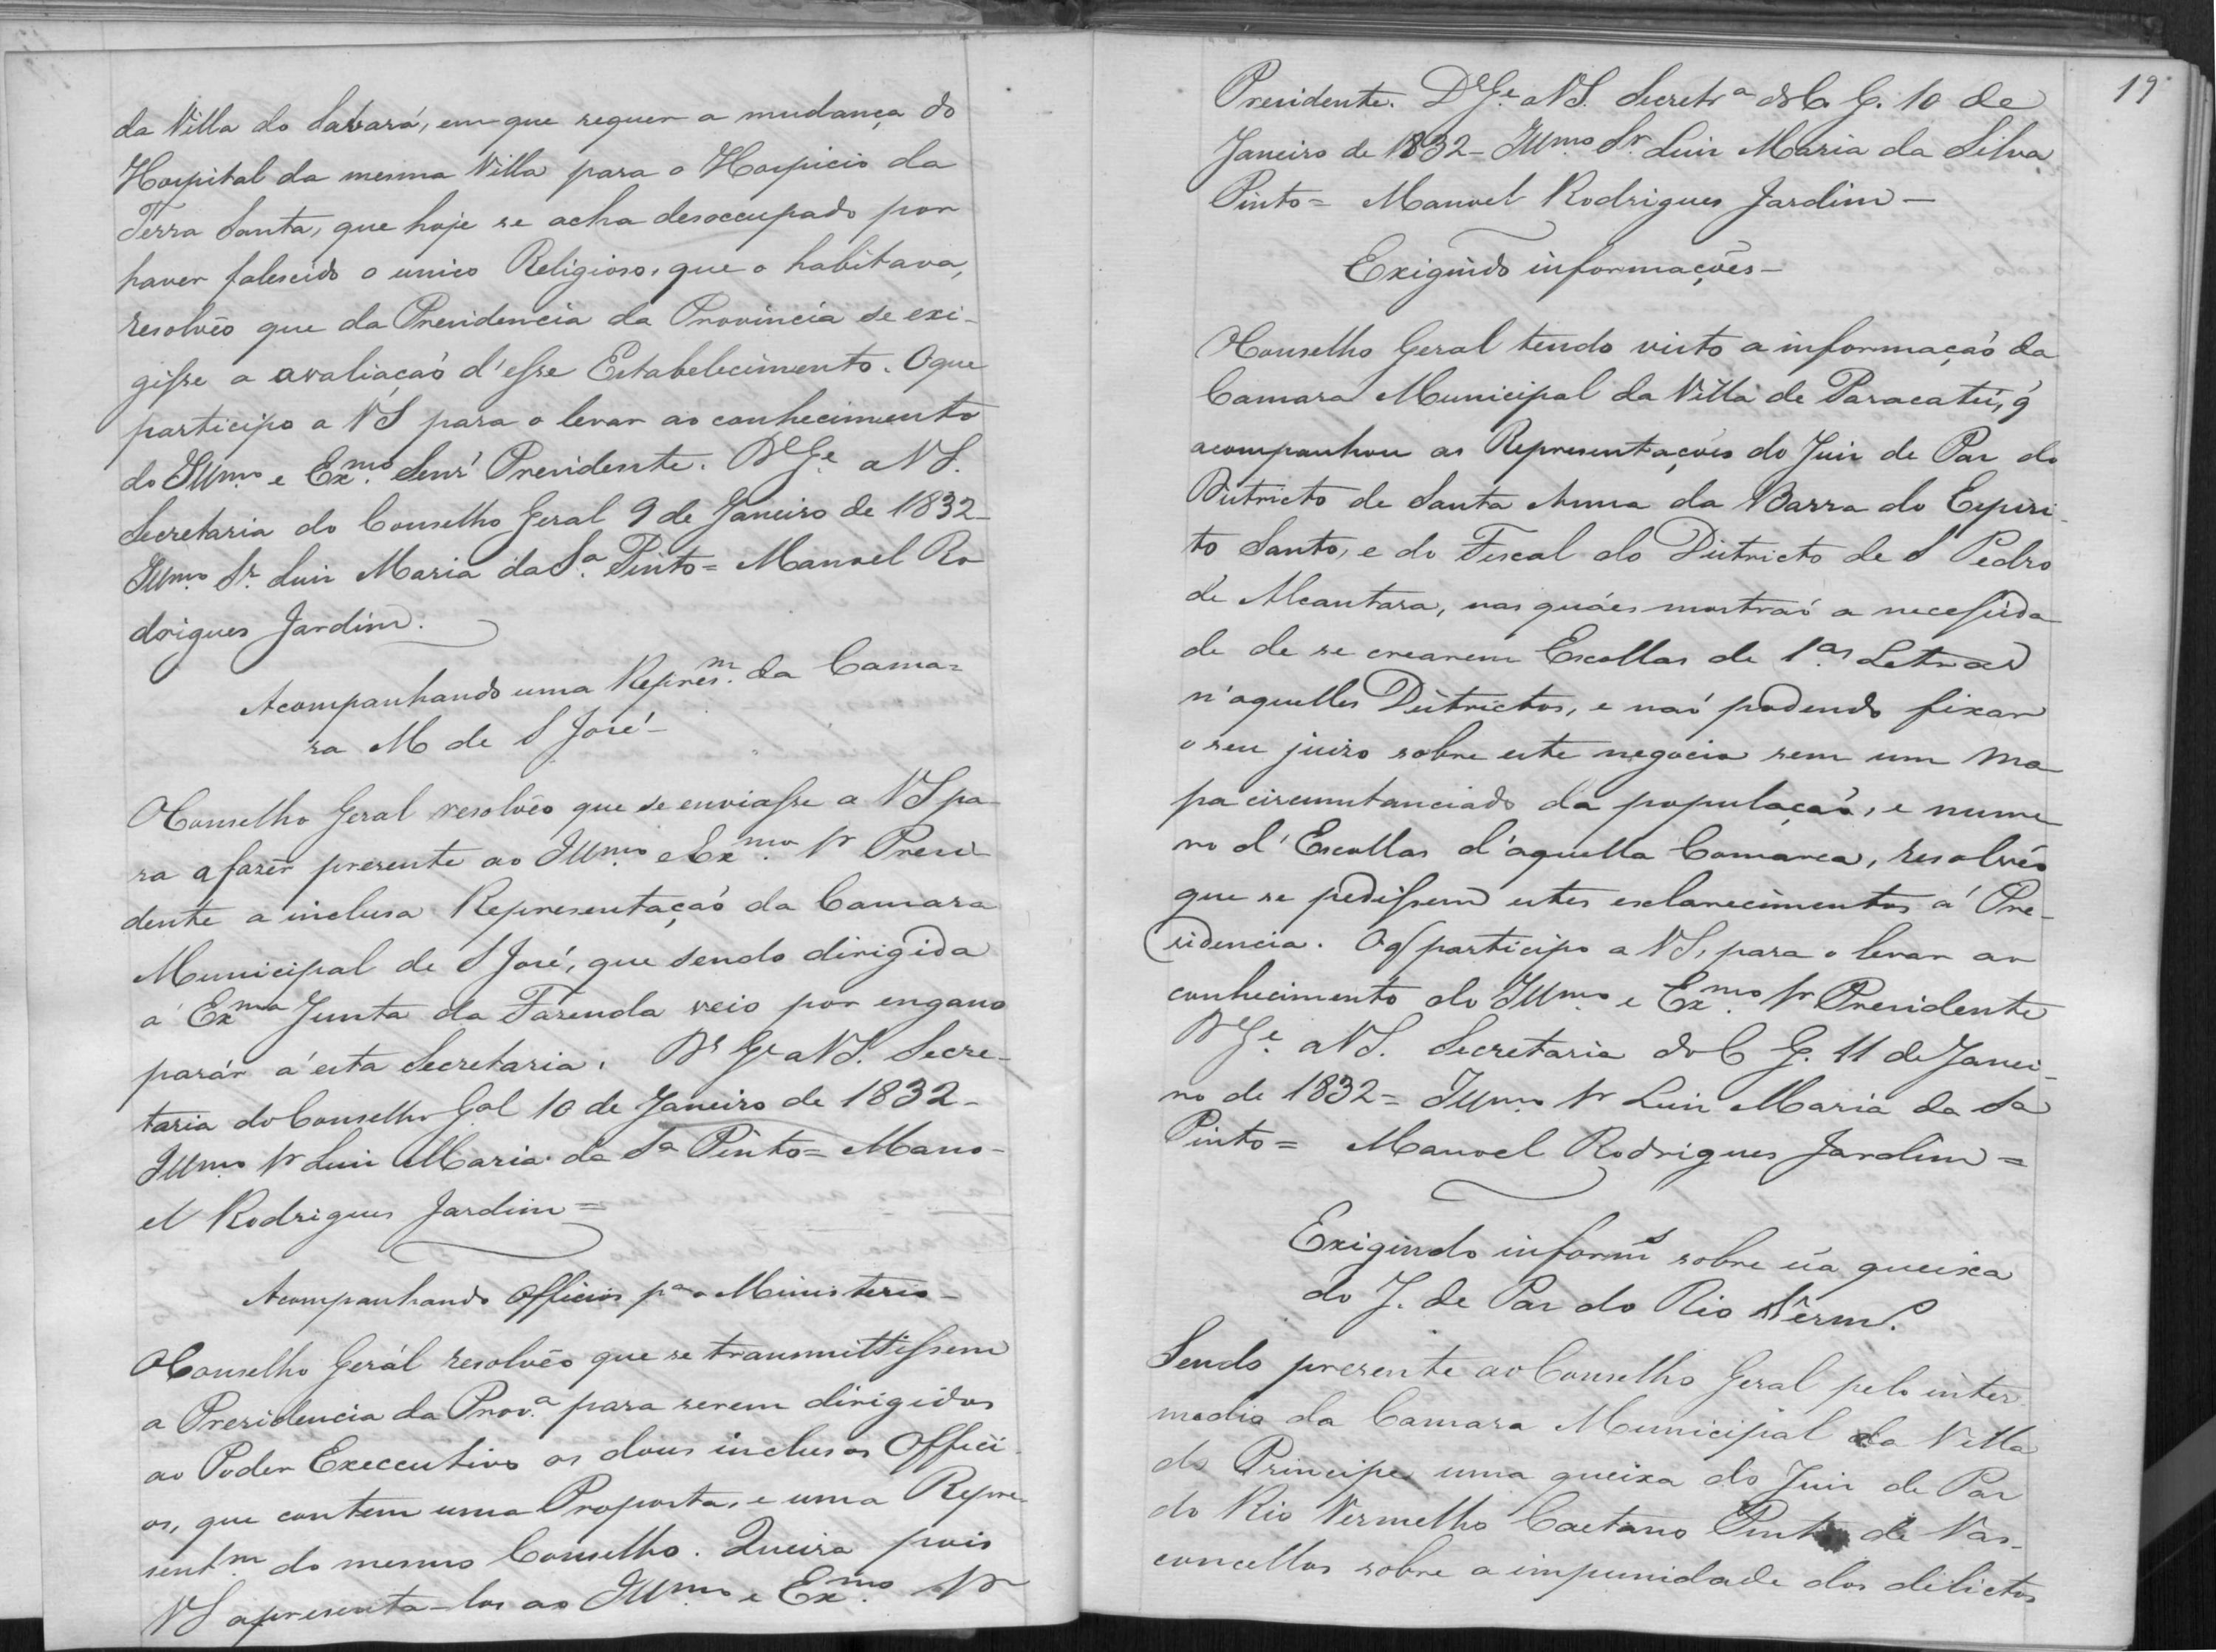 da Villa do Sabará, em que requer a mudança do
Hospital da mesma Villa para o Hospicio da
Terra Santa, que hoje se acha desoccupado por
haver falescido o unico Religioso, que o habitava,
resolvêo que da Presidencia da Provincia se exi-
gisse a avaliaçaõ d'esse Estabelecimento. O que
participo a VS para o levar ao conhecimento
do Illmo. e Exmo. Senr' Presidente. Ds Ge. a VS.
Secretaria do Conselho Geral 9 de Janeiro de 1832-
Illmo. Sr. Luiz Maria da Sa. Pinto= Manoel Ro
drigues Jardim.
Acompanhando uma Represm. da Cama=
ra M de S José-
O Conselho Geral resolvêo que se enviasse a VS pa-
ra a fazêr presente ao Illmo. e Exmo. Sr Presi-
dente a inclusa Representaçaõ da Camara
Municipal de S José, que sendo dirigida
á Exma Junta da Fazenda veio por engano
parár á esta Secretaria. Ds Ge a VS. Secre-
taria do Conselho Gal 10 de Janeiro de 1832-
Illmo. Sr Luiz Maria da Sa Pinto= Mano-
el Rodrigues Jardim=
Acompanhando Officios pa. o Ministerio-
O Conselho Gerál resolvêo que se transmittissem
a Presidencia da Prova. para serem dirigidos
ao Poder Execcutivo os dous inclusos Offici-
os, que contem uma Proposta, e uma Repre-
sentm. do mesmo Conselho. Queira pois
VS apresenta-los ao Illmo. e Exmo. Sr
19
Presidente. Ds Ge. a VS. Secreta do C. G. 10 de
Janeiro de 1832- Illmo. Sr. Luiz Maria da Silva
Pinto= Manoel Rodrigues Jardim-
Exigindo informações-
O Conselho Geral tendo visto a informaçaõ da
Camara Municipal da Villa de Paracatú, q'
acompanhou as Representações do Juiz de Paz do
Districto de Santa Anna da Barra do Espiri-
to Santo, e do Fiscal do Districto de S Pedro
de Alcantara, nas quáes mostraõ a necessida
de de se crearem Escollas de 1as. Letras
n'aquelles Districtos, e naõ podendo fixar
o seu juizo sobre este negocio sem um Ma
pa circumstanciado da populaçaõ, e nume
ro d'Escollas d'aquella Comarca, resolvêo
que se pedissem estes esclarecimentos á Pre-
sidencia. O q' participo a VS, para o levar ao
conhecimento do Illmo. e Exmo. Sr Presidente
Ds Ge. a VS. Secretaria do C G. 11 de Janei-
ro de 1832= Illmo. Sr Luiz Maria da Sa
Pinto= Manoel Rodrigues Jardim=
Exigindo informs sobre ũa queixa
do J. de Paz do Rio Verm.
Sendo presente ao Conselho Geral pelo inter
medio da Camara Municipal da Villa
do Principe uma queixa do Juiz de Paz
do Rio Vermelho Caetano Pinto de Vas-
concellos sobre a impunidade dos delictos